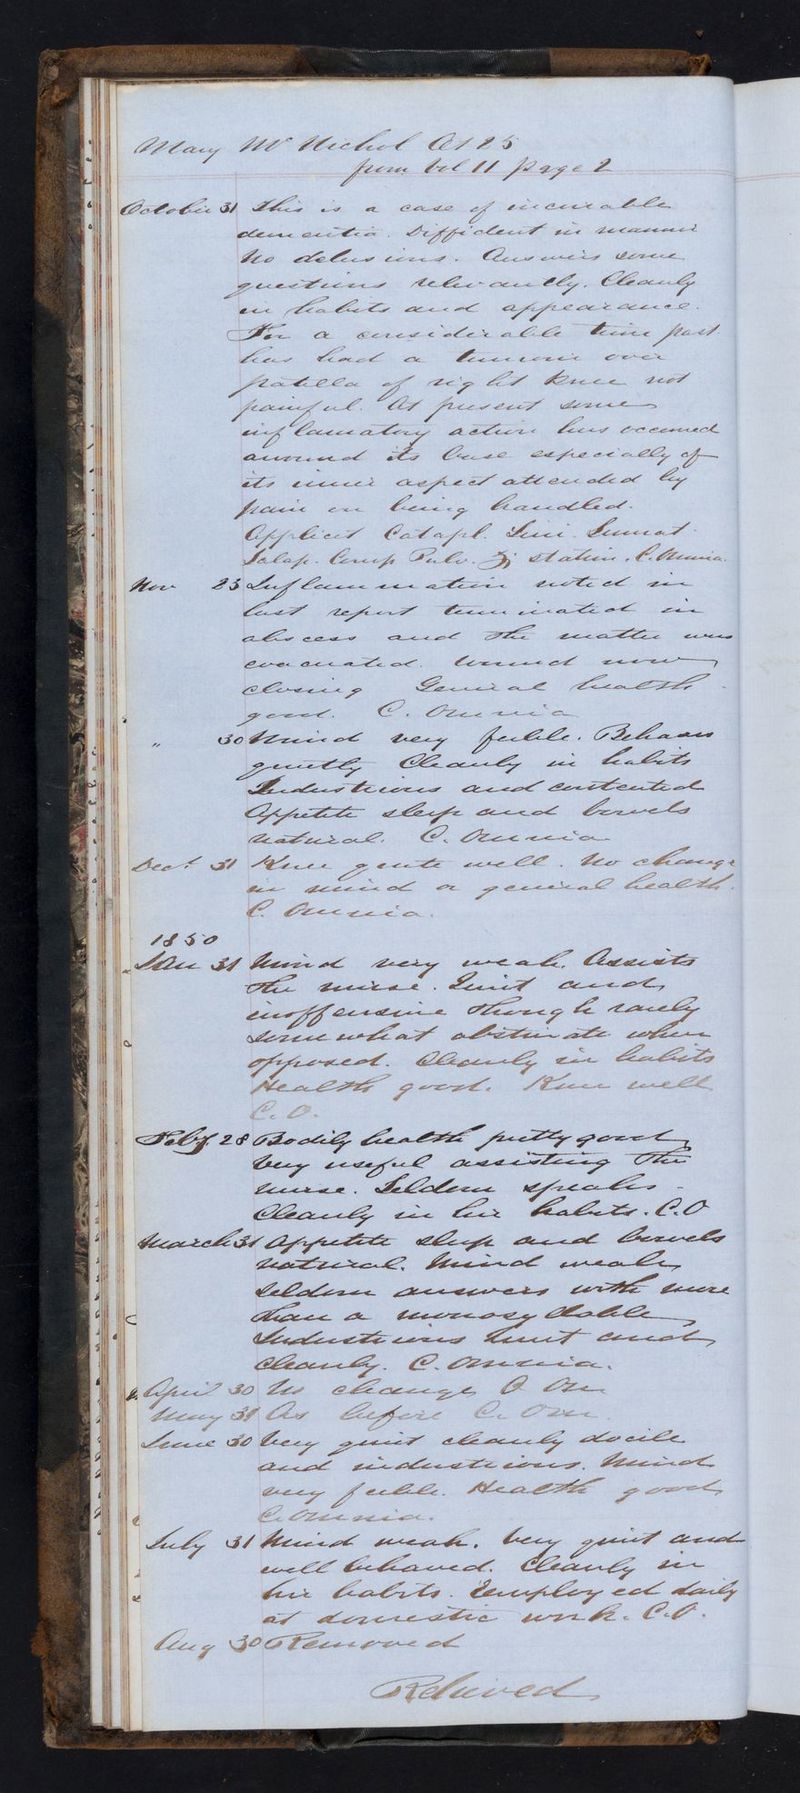 Mary McNichol Aet 25
from Vol 11 page 2
October 31 This is a case of incurable
dementia. Diffident in manner
No delusions. Answers some
questions relevantly. Cleanly
in habits and appearance.
For a considerable time past
has had a tumour over
patella of right knee not
painful. At present some
inflamatory action has occurred
around its base especially of
its inner aspect attended by
pain on being handled.
Applicet Catapl. Lini
Jalap. Comp Pulv. ʒj statim. C. Omnia.
Nov 23 Inflammation noted in
last report terminated in
abscess and the matter was
evacuated. Wound now
closing General health
good. C. Omnia
" 30 Mind very feeble. Behaves
quietly Cleanly in habits
Industrious and contented
Appetite sleep and bowels
natural. C. Omnia
Decr 31 Knee quite well. No change
in mind or general health.
C. Omnia.
1850
Jan 31 Mind very weak. Assists
the nurse. Quiet and
inoffensive though rarely
somewhat obstinate when
opposed. Cleanly in habits
Health good. Knee well
C. O.
Feby 28 Bodily health pretty good
Very useful assisting the
nurse. Seldom speaks.
Cleanly in her habits. C. O
March 31 Appetite sleep and bowels
natural. Mind weak
Seldom answers with more
than a monosyllable
Industrious quiet and
cleanly. C. Omnia.
April 30 No change C Om
May 31 As before C. Om.
June 30 Very quiet cleanly docile
and industrious. Mind
very feeble. Health good
C. Omnia.
July 31 Mind weak. Very quiet and
well behaved. Cleanly in
her habits. Employed daily
at domestic work. C. O.
Aug 30 Removed
Relieved